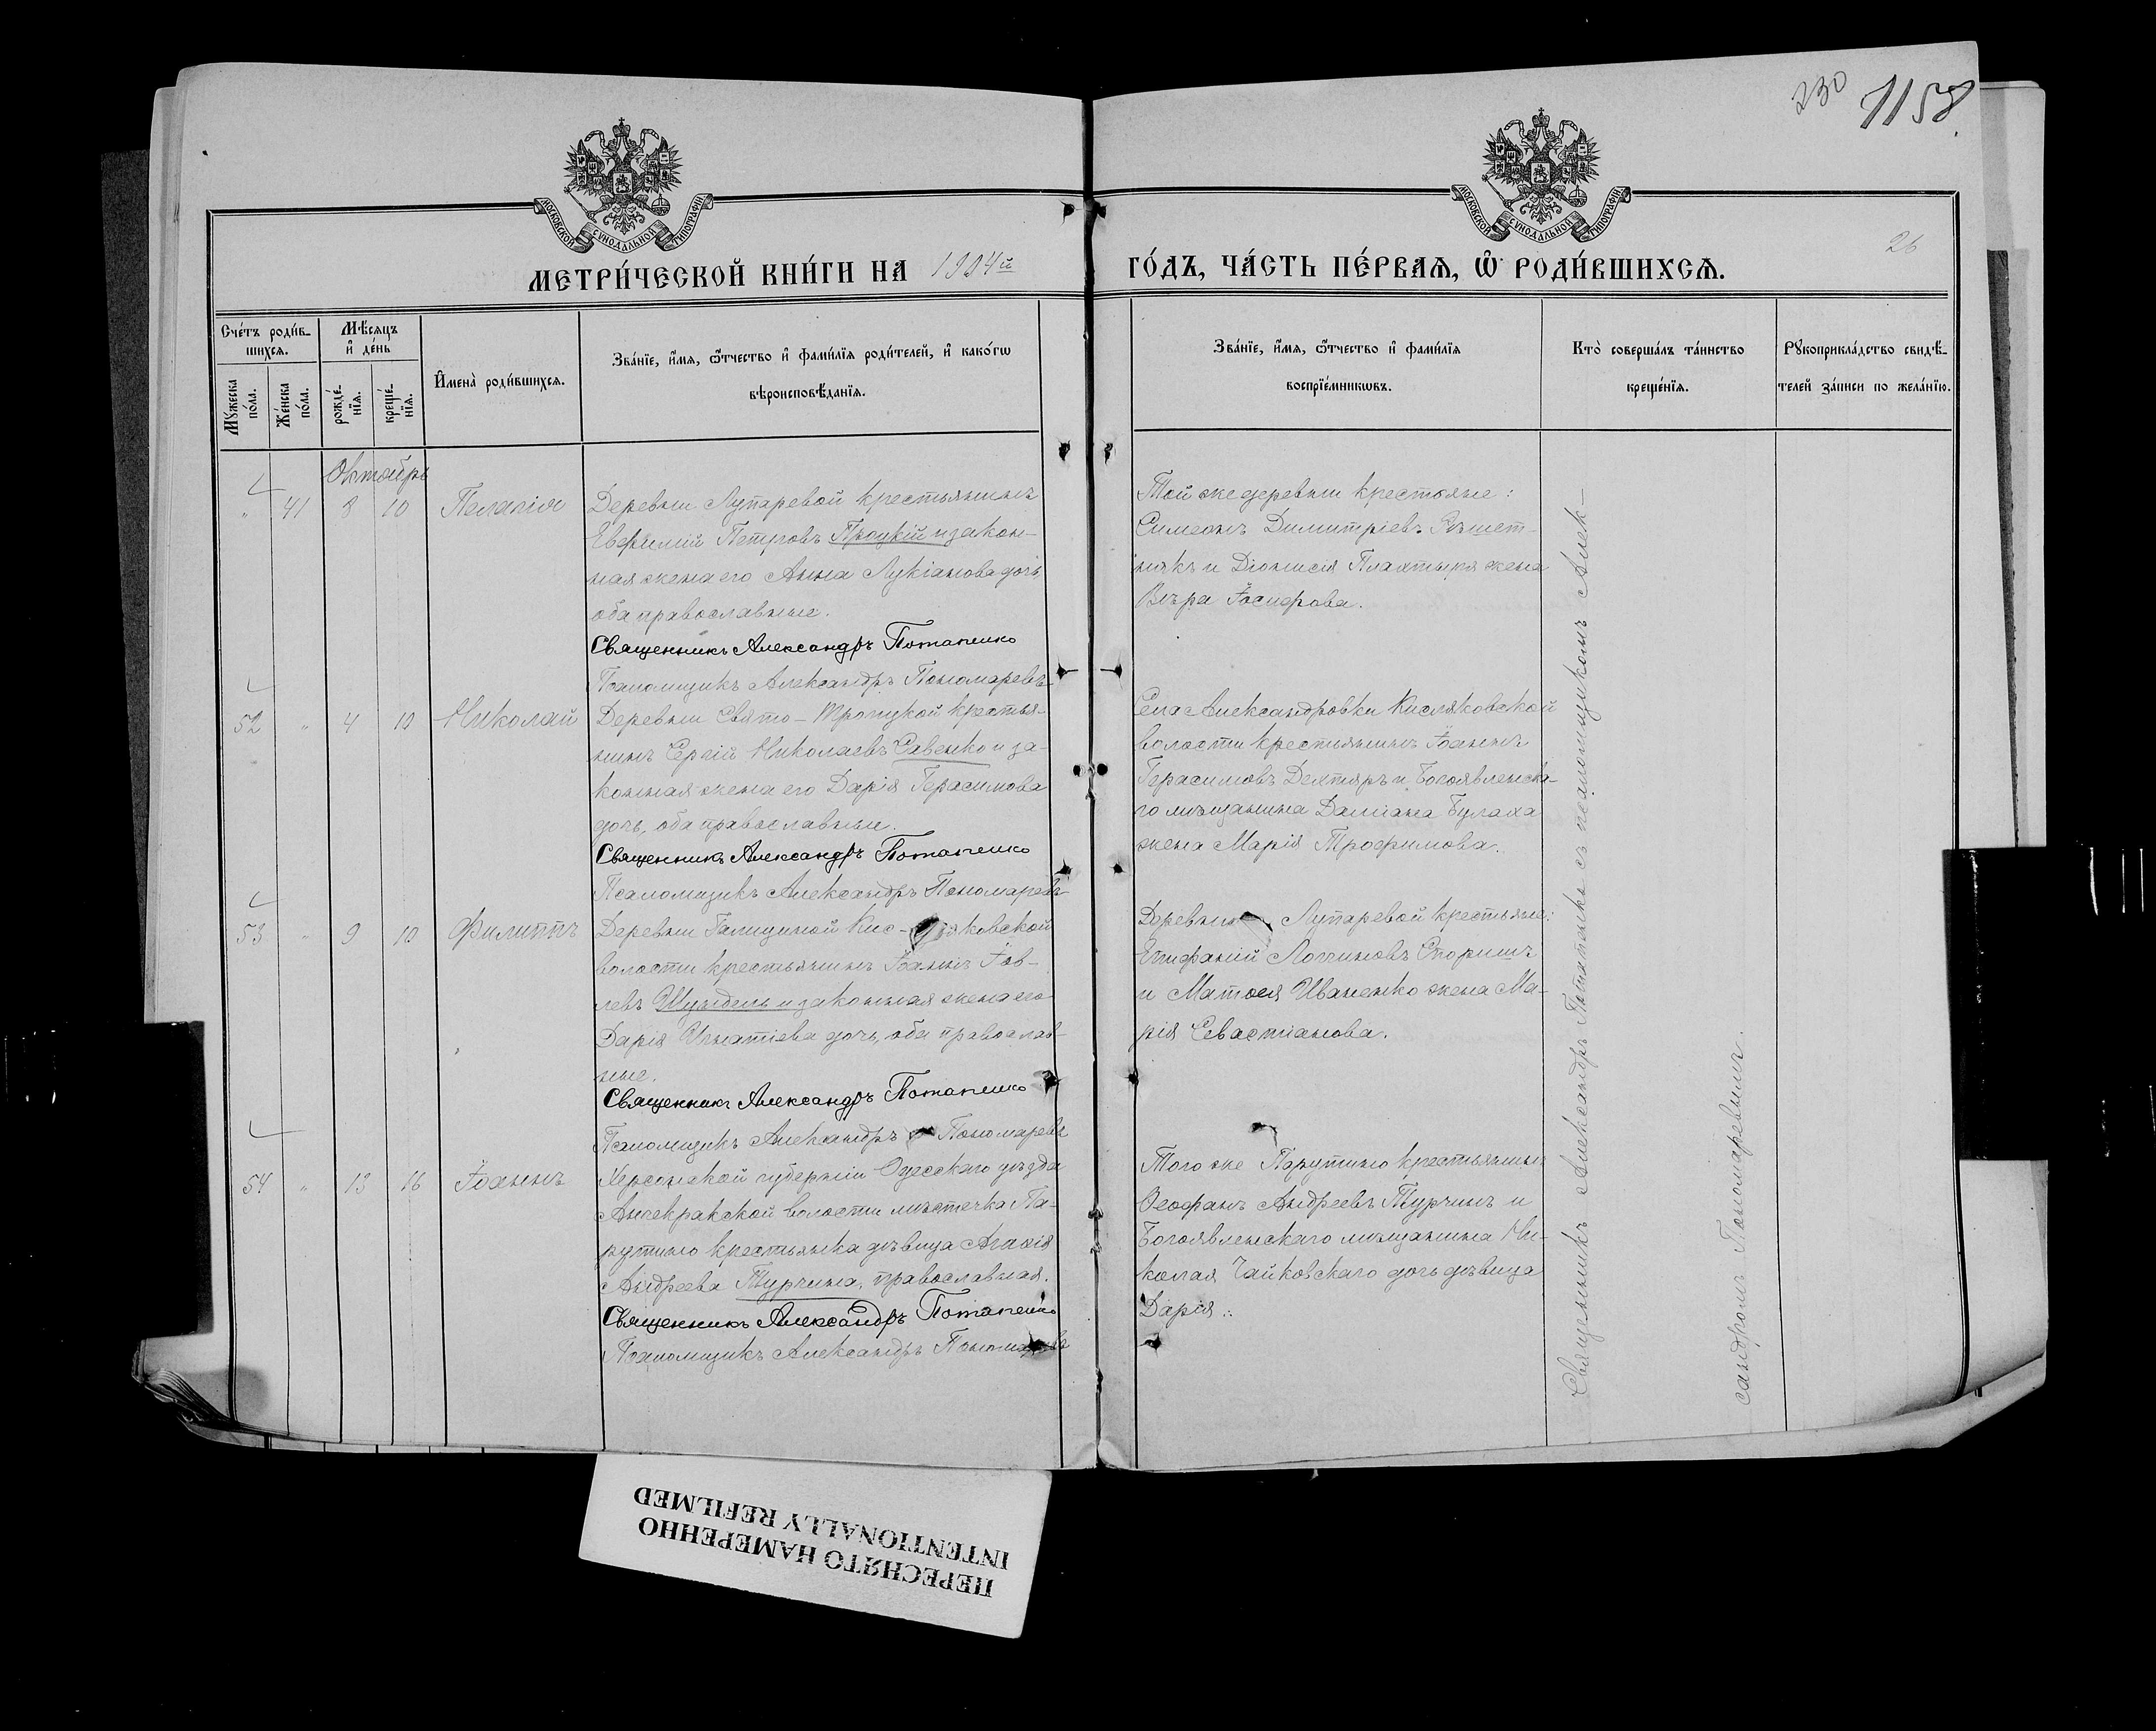 230 1158
МОСКОВСКОЙ СУНОДАЛЬНОЙ ТИПОГРАФИИ
МОСКОВСКОЙ СУНОДАЛЬНОЙ ТИПОГРАФИИ
26
МЕТРИ́ЧЕСКОЙ КНИ́ГИ НА 1904й ГО́ДЪ, ЧА́СТЬ ПЕ́РВАѦ, Ѡ҆ РОДИ́ВШИХСѦ.
Сче́тъ роди́в-
шихсѧ.
Мѣ́сѧцъ
и҆ де́нь
Мꙋ́жеска
по́ла.
Же́нска
по́ла.
рожде́-
нїѧ.
креще́-
нїѧ.
И҆мена̀ роди́вшихсѧ.
Зва́нїе, и҆́мѧ, ѻ҆́тчество и҆ фами́лїѧ роди́телей, и҆ како́гѡ
вѣроисповѣ́данїѧ.
Зва́нїе, и҆́мѧ, ѻ҆́тчество и҆ фами́лїѧ
воспрїе́мникѡвъ.
Кто̀ соверша́лъ та́инство
креще́нїѧ.
Рꙋкоприкла́дство свидѣ́-
телей за́писи по жела́нїю.
Октябрь
" 41 8 10 Пелагія
Деревни Лупаревой крестьянинъ
Евфимій Петровъ Процкій и закон-
ная жена его Анна Лукіанова дочь,
оба православные.
Священникъ Александръ Потапенко
Псаломщикъ Александръ Пономаревъ
Той же деревни крестьяне:
Симеонъ Димитріевъ
някъ и Діонисія Плахтыря жена
Вѣра Іосифова.
52 " 4 10 Николай
Деревни Свято-Троицкой крестья-
нинъ Сергій Николаевъ Савенко и за-
конная жена его Дарія Герасимова
дочь, оба православные.
Священникъ Александръ Потапенко
Псаломщикъ Александръ Пономаревъ
Села Александровки Кисляковской
волости крестьянинъ Іоаннъ
Герасимовъ Дехтяръ и Богоявленска-
го мѣщанина Даміана Булаха
жена Марія Трофимова.
53 " 9 10 Филиппъ
Деревни Галициной Кис-ляковской
волости крестьянинъ Іоаннъ Іов-
левъ Шундель и законная жена его
Дарія Игнатіева дочь, оба православ-
ные.
Священникъ Александръ Потапенко
Псаломщикъ Александръ Пономаревъ
Деревни Лупаревой крестьяне:
Епифаній Логгиновъ Споришъ
и Матѳея Иваненко жена Ма-
рія Севастіанова.
54 " 13 16 Іоаннъ
Херсонской губерніи Одесскаго уѣзда
Анчекракской волости мѣстечка Па-
рутино крестьянка дѣвица Агаѳія
Андреева Турчина, православная.
Священникъ Александръ Потапенко
Псаломщикъ Александръ Пономаревъ
Того же Парутино крестьянинъ
Ѳеофанъ Андреевъ Турчинъ и
Богоявленскаго мѣщанина Ни-
колая Чайковскаго дочь дѣвица
Дарія.
Священникъ Александръ Потапенко съ псаломщикомъ Алек-
сандромъ Пономаревымъ.
ПЕРЕСНЯТО НАМЕРЕННО
INTENTIONALLY REFILMED